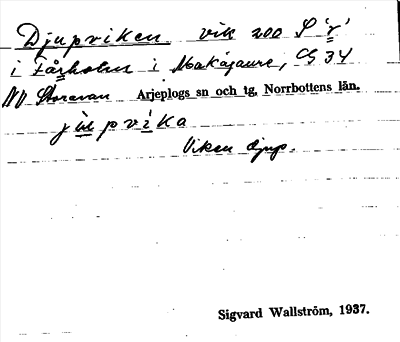 Djupviken. vik 200 S 'r'
i Fårholm i Makágaure, C5 34
NV Storavan Arjeplogs sn och tg, Norrbottens län.
jupvika
Viken djup.
Sigvard Wallström, 1937.